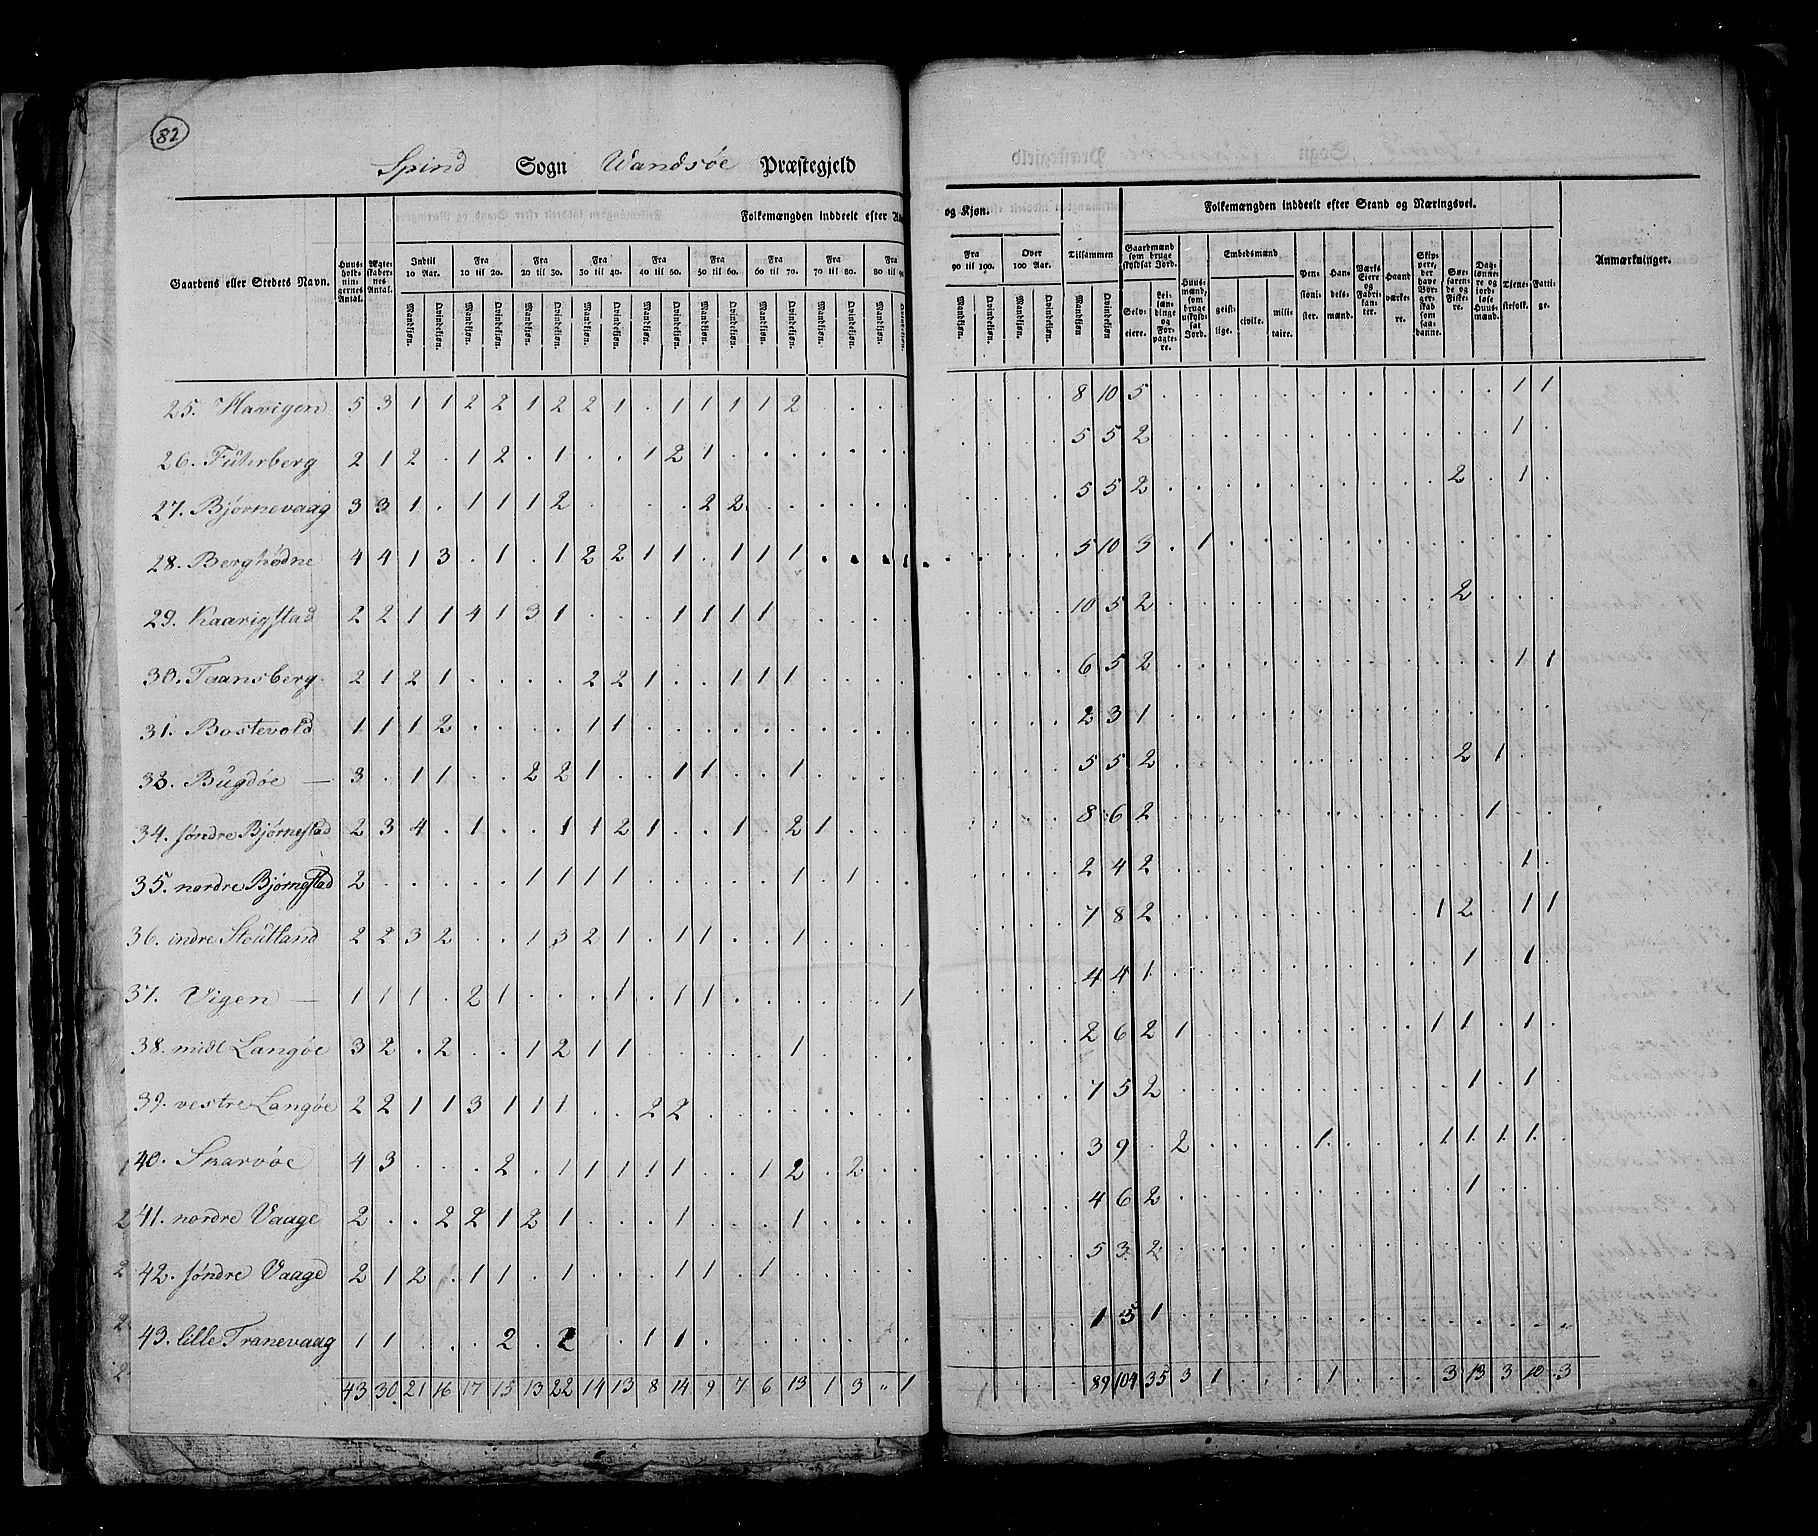 82
Spind Sogn Wandsøe Præstegjeld
Folkemængden inddeelt efter Al
og Kjøn.
Folkemængden inddeelt efter Stand og Næringsvei.
Gaardens eller Stedets Navn.
Huusholdningernes Antal.
Ægteskabernes Antal.
Indtil 10 Aar.
Fra 10 til 20.
Fra 20 til 30.
Fra 30 til 40.
Fra 40 til 50.
Fra 50 til 60.
Fra 60 til 70.
Fra 70 til 80.
Fra 80 til 90
Fra 90 til 100.
Over 100 Aar.
Tilsammen
Mandkjøn. Qvindekjøn.
Gaardmænd som bruge skyldsat Jord.
Selveiere.
Leilændinge og Forpagtere.
Huusmænd, som bruge uskyldsat Jord.
Embedsmænd
geistlige. civile. militaire.
Pensionister.
Handelsmænd.
Værks Eiere og Fabrikanter.
Haandværkere.
Skippere, der have Borgerskab som saadanne.
Søefarende og Fiskere.
Dagslønnere og jordløse Huusmænd.
Tjenestefolk.
Fattige.
Anmærkninger.
25. Havigen 5 3 1 1 2 2 1 2 2 1 . 1 1 1 1 2 . . . 8 10 5 1 1
26. Führberg 2 1 2 . 1 2 . 1 . . 1 2 1 . . . 5 5 2 1 .
27. Bjørnevaag 3 3 1 . 1 1 1 2 . . . . 2 2 . . 5 5 2 2 . 1 .
28. Berghødne 4 4 1 3 . 1 . 1 2 2 1 1 . 1 1 1 . . . 1 5 10 3 . 1
29. Kaarigstad 2 2 1 1 4 1 3 1 . . . 1 1 1 1 . 10 5 2 2
30. Taansberg 2 1 2 1 . . . . 2 2 1 . . 1 1 1 6 5 2 1 1
31. Bostevold 1 1 1 2 . . . . 1 1 . 2 3 1
33. Bügdøe — 3 . 1 1 . . 2 2 1 . . 1 1 . . 1 5 5 2 2 1
34. søndre Bjørnestad 2 3 4 . 1 . . 1 1 2 1 . . 1 . 2 1 8 6 2 1
35. nordre Bjørnestad 2 . . . . . 1 1 1 1 . . . . . 1 . 1 2 4 2 1 .
36. indre Steütland 2 2 3 2 . . 1 3 2 1 . 1 1 . . 1 7 8 2 1 2 . 1 1
37. Vigen — 1 1 1 . 2 1 . . . 1 . 1 1 . . . . . . 1 4 4 1 1 . 1 .
38. midt Langøe 3 2 . 2 . . 1 2 1 1 . . . . . 1 2 6 2 1 1 1 . 1 .
39. vestre Langøe 2 2 1 1 3 1 1 1 . . 2 2 . 7 5 2 1 . 1 .
40. Skarvøe 4 3 . . . 2 . 1 1 1 1 1 . . 1 2 . 2 3 9 . 2 1 1 1 1 1
41. nordre Vaage 2 . . 2 2 1 2 1 . . . 1 . . . 1 4 6 2 1
42. søndre Vaage 2 1 2 . 1 1 . 1 . . . 1 1 . 1 . 5 3 2
43. lille Tranevaag 1 1 . . . 2 . 2 . . 1 1 . 1 5 1
43 30 21 16 17 15 13 22 14 13 8 14 9 7 6 13 1 3 " 1 89 104 35 3 1 . . . 1 . . . 3 13 3 10 3